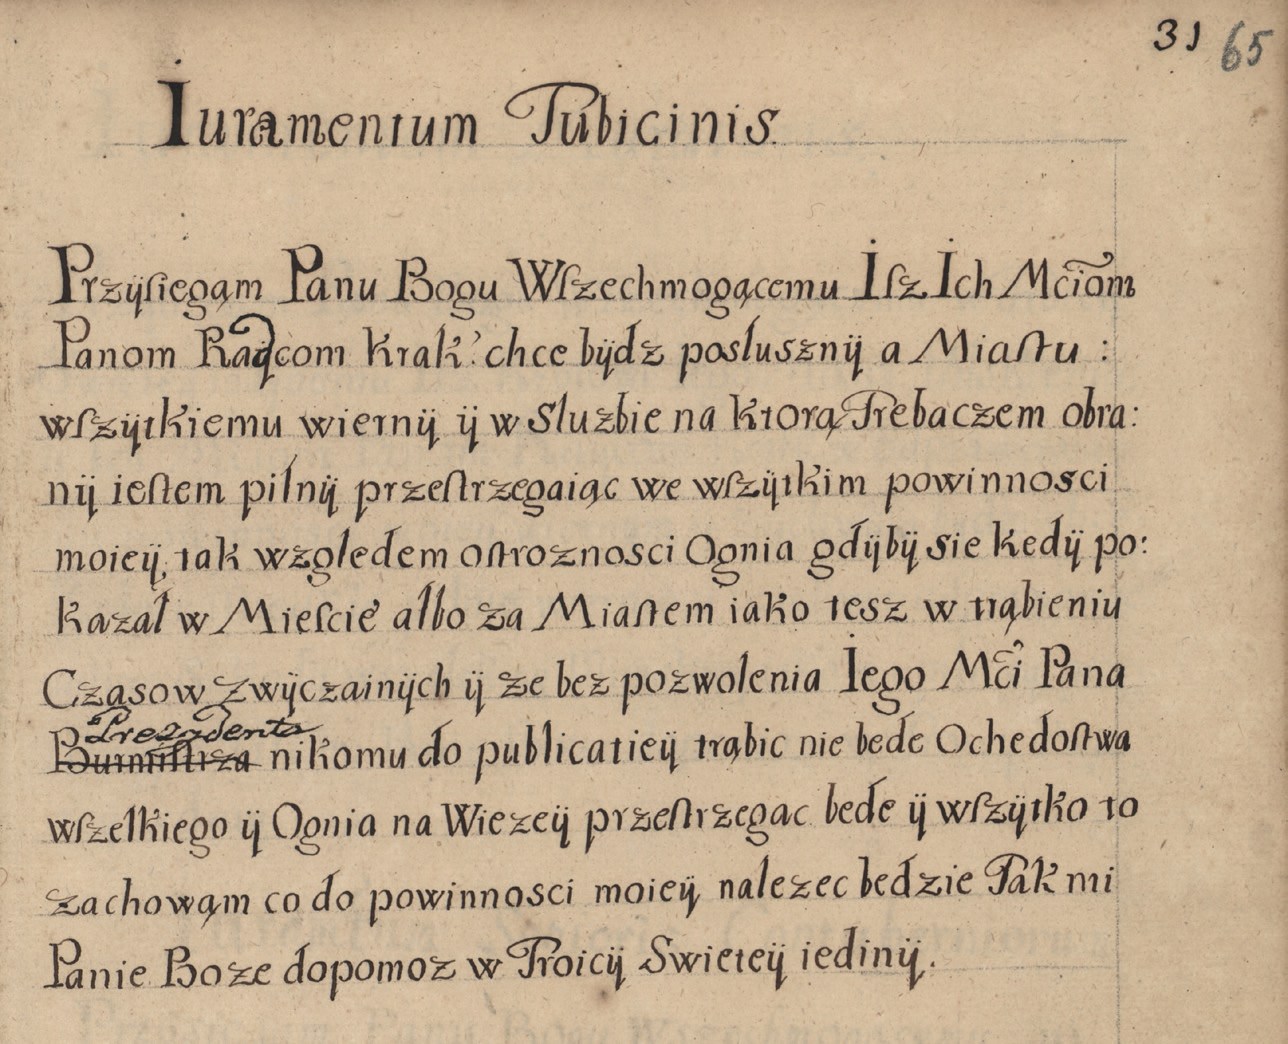 31 65
Iuramentum Tubicinis
Przÿsiegąm Panu Bogu Wszechmogącemu Isz Ich Mćiom
Panom Raÿcom Krak: chce bÿdz posłusznÿ a Miastu :
wszÿtkiemu wiernÿ ÿ w Sluzbie na Ktorą Trebaczem obra:
nÿ iestem pilnÿ przestrzegaiąc we wszÿtkim powinnosci
moieÿ, tak względem ostroznosci Ognia gdÿbÿ sie kedÿ po:
kazał w Miescie albo za Miastem iako tesz w trąbieniu
Czasow zwÿczainÿch ÿ ze bez pozwolenia Iego Mći Pana
Prezÿdenta
Burmistrza nikomu do publicatieÿ trąbic nie bede Ochedostwa
wszelkiego ÿ Ognia na Wiezeÿ przestrzegac bede ÿ wszÿtko to
zachowąm co do powinnosci moieÿ nalezec bedzie Tak mi
Panie Boze dopomoz w Troicÿ Swieteÿ iedinÿ.